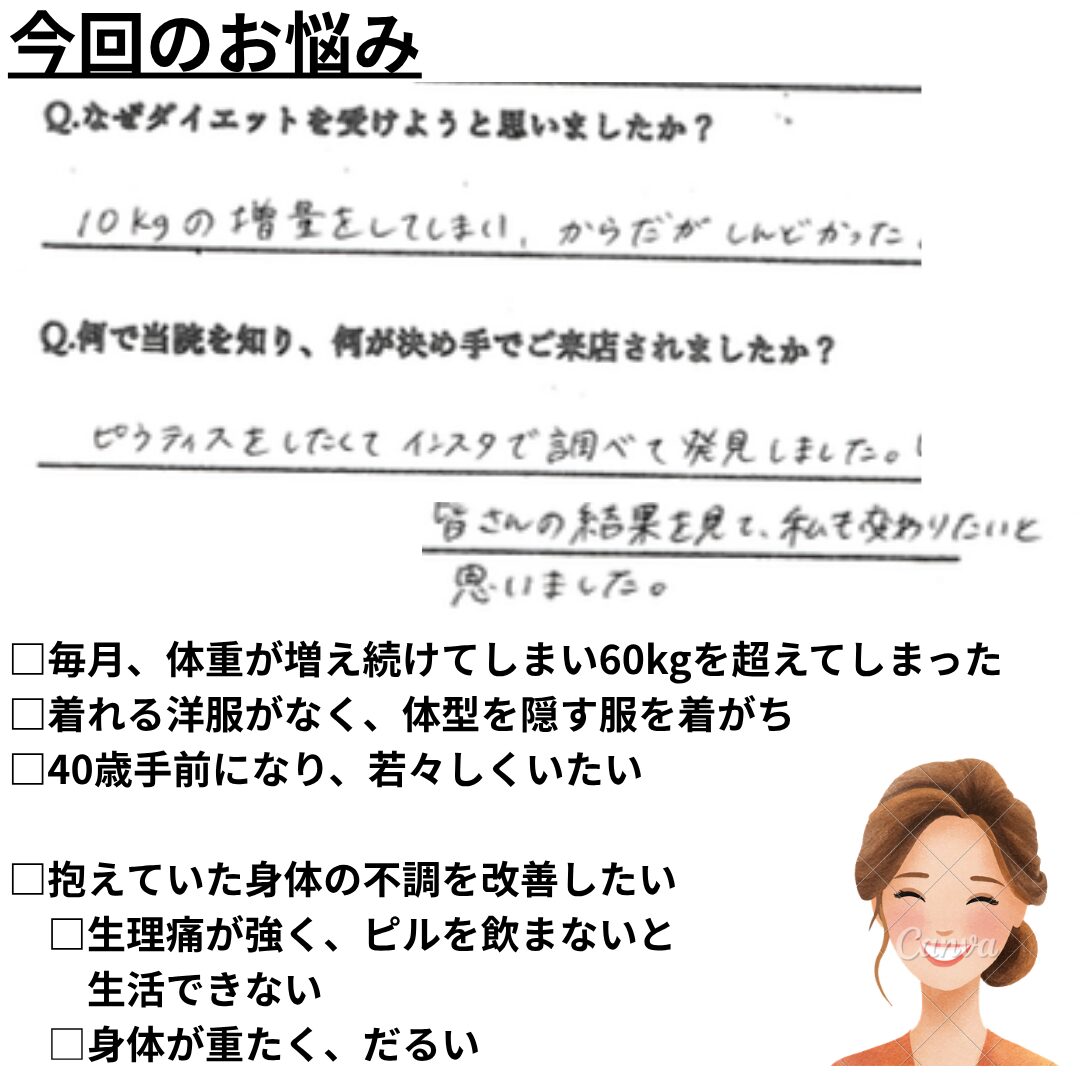 今回のお悩み
Q.なぜダイエットを受けようと思いましたか？
10kgの増量をしてしまい、からだがしんどかった。
Q.何で当院を知り、何が決め手でご来店されましたか？
ピラティスをしたくてインスタで調べて発見しました。
皆さんの結果を見て、私も変わりたいと
思いました。
□毎月、体重が増え続けてしまい60kgを超えてしまった
□着れる洋服がなく、体型を隠す服を着がち
□40歳手前になり、若々しくいたい
□抱えていた身体の不調を改善したい
□生理痛が強く、ピルを飲まないと
生活できない
□身体が重たく、だるい
Canva